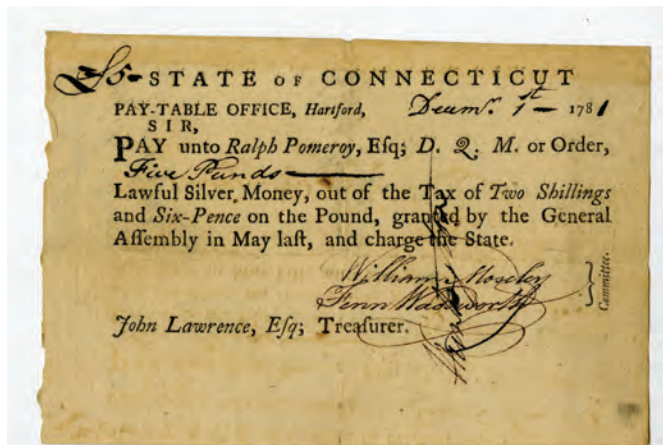 £5-STATE OF CONNECTICUT
PAY-TABLE OFFICE, Hartford, Decemr. 1st - 1781
SIR,
PAY unto Ralph Pomeroy, Eſq; D. Q. M. or Order,
Five Punds
Lawful Silver Money, out of the Tax of Two Shillings
and Six-Pence on the Pound, granted by the General
Aſſembly in May laſt, and charge the State.
William Moseley
Fenn Wadsworth
Committee.
John Lawrence, Eſq; Treaſurer.